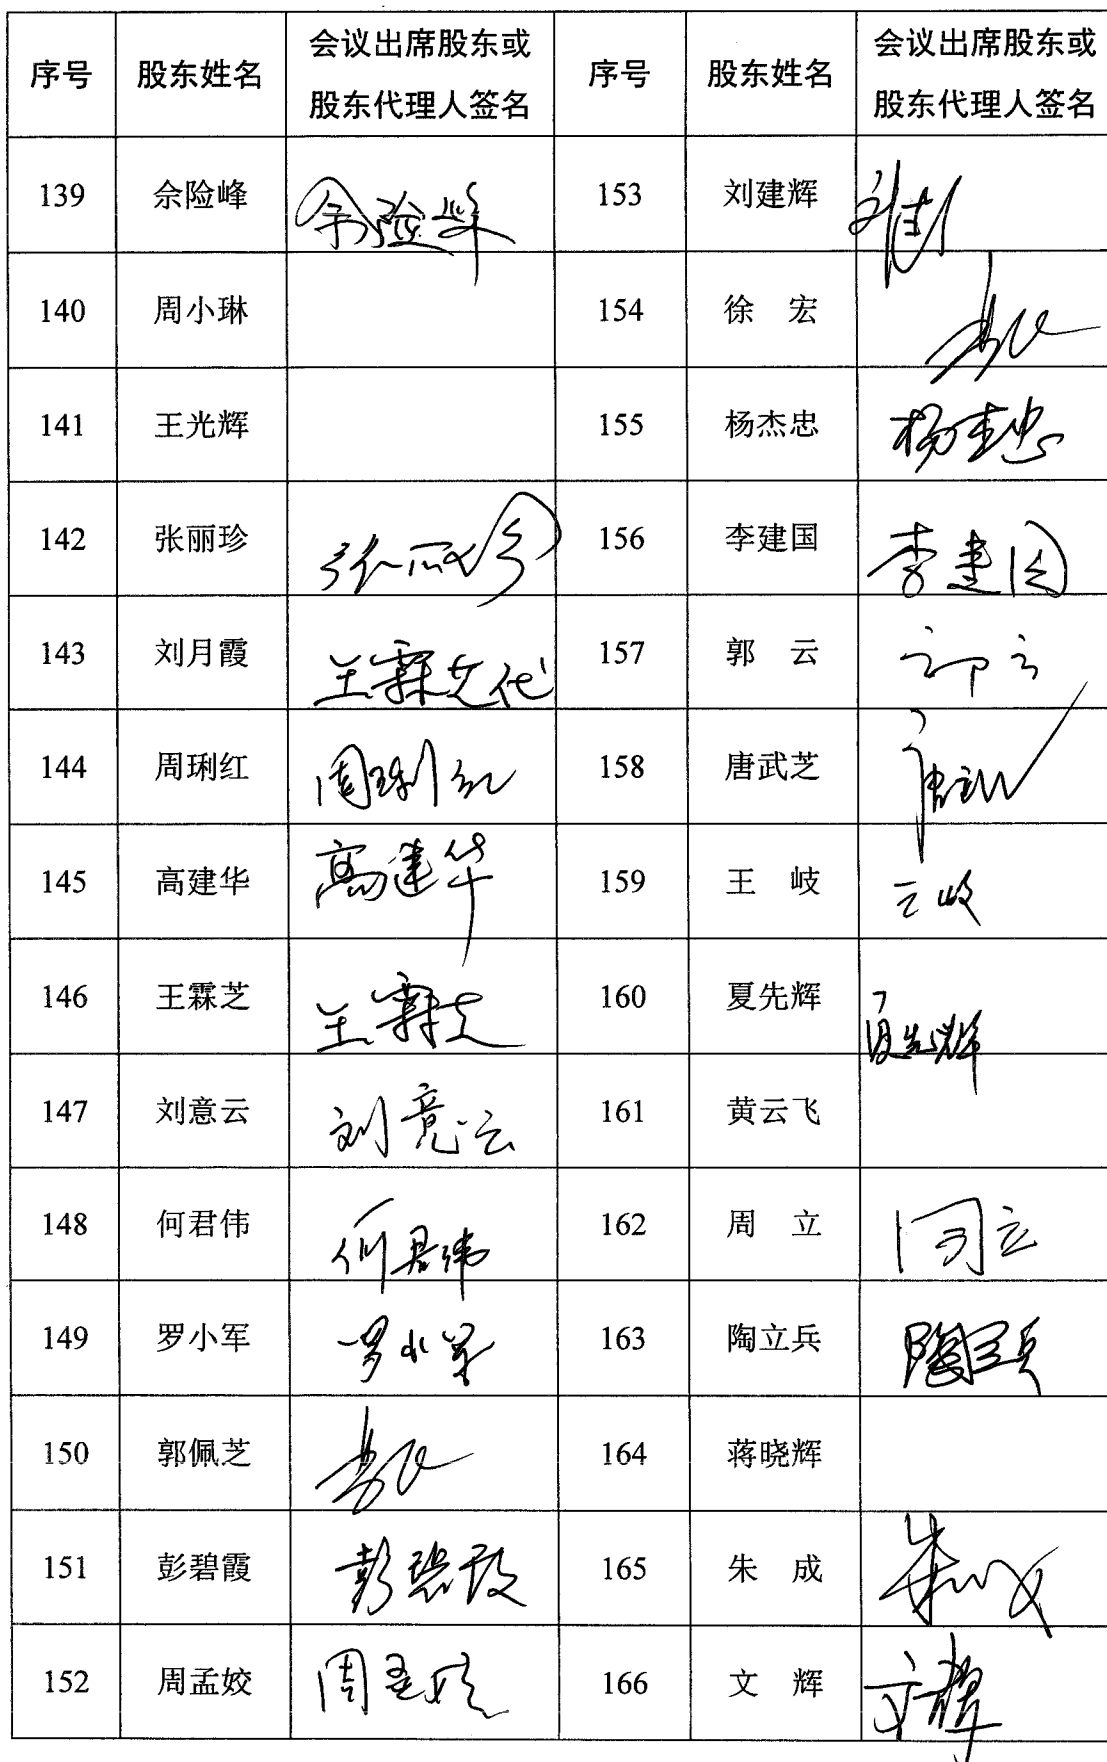 序号 股东姓名 会议出席股东或 序号 股东姓名 会议出席股东或
股东代理人签名 股东代理人签名
139 佘险峰 佘险峰 153 刘建辉
140 周小琳 154 徐 宏
141 王光辉 155 杨杰忠 杨杰忠
142 张丽珍 张丽珍 156 李建国 李建国
143 刘月霞 王霖芝代 157 郭 云 郭云
144 周琍红 周琍红 158 唐武芝
145 高建华 高建华 159 王 岐 王岐
146 王霖芝 王霖芝 160 夏先辉 夏先辉
147 刘意云 刘意云 161 黄云飞
148 何君伟 何君伟 162 周 立 周立
149 罗小军 罗小军 163 陶立兵 陶立兵
150 郭佩芝 164 蒋晓辉
151 彭碧霞 彭碧霞 165 朱 成 朱成
152 周孟姣 周孟姣 166 文 辉 文辉